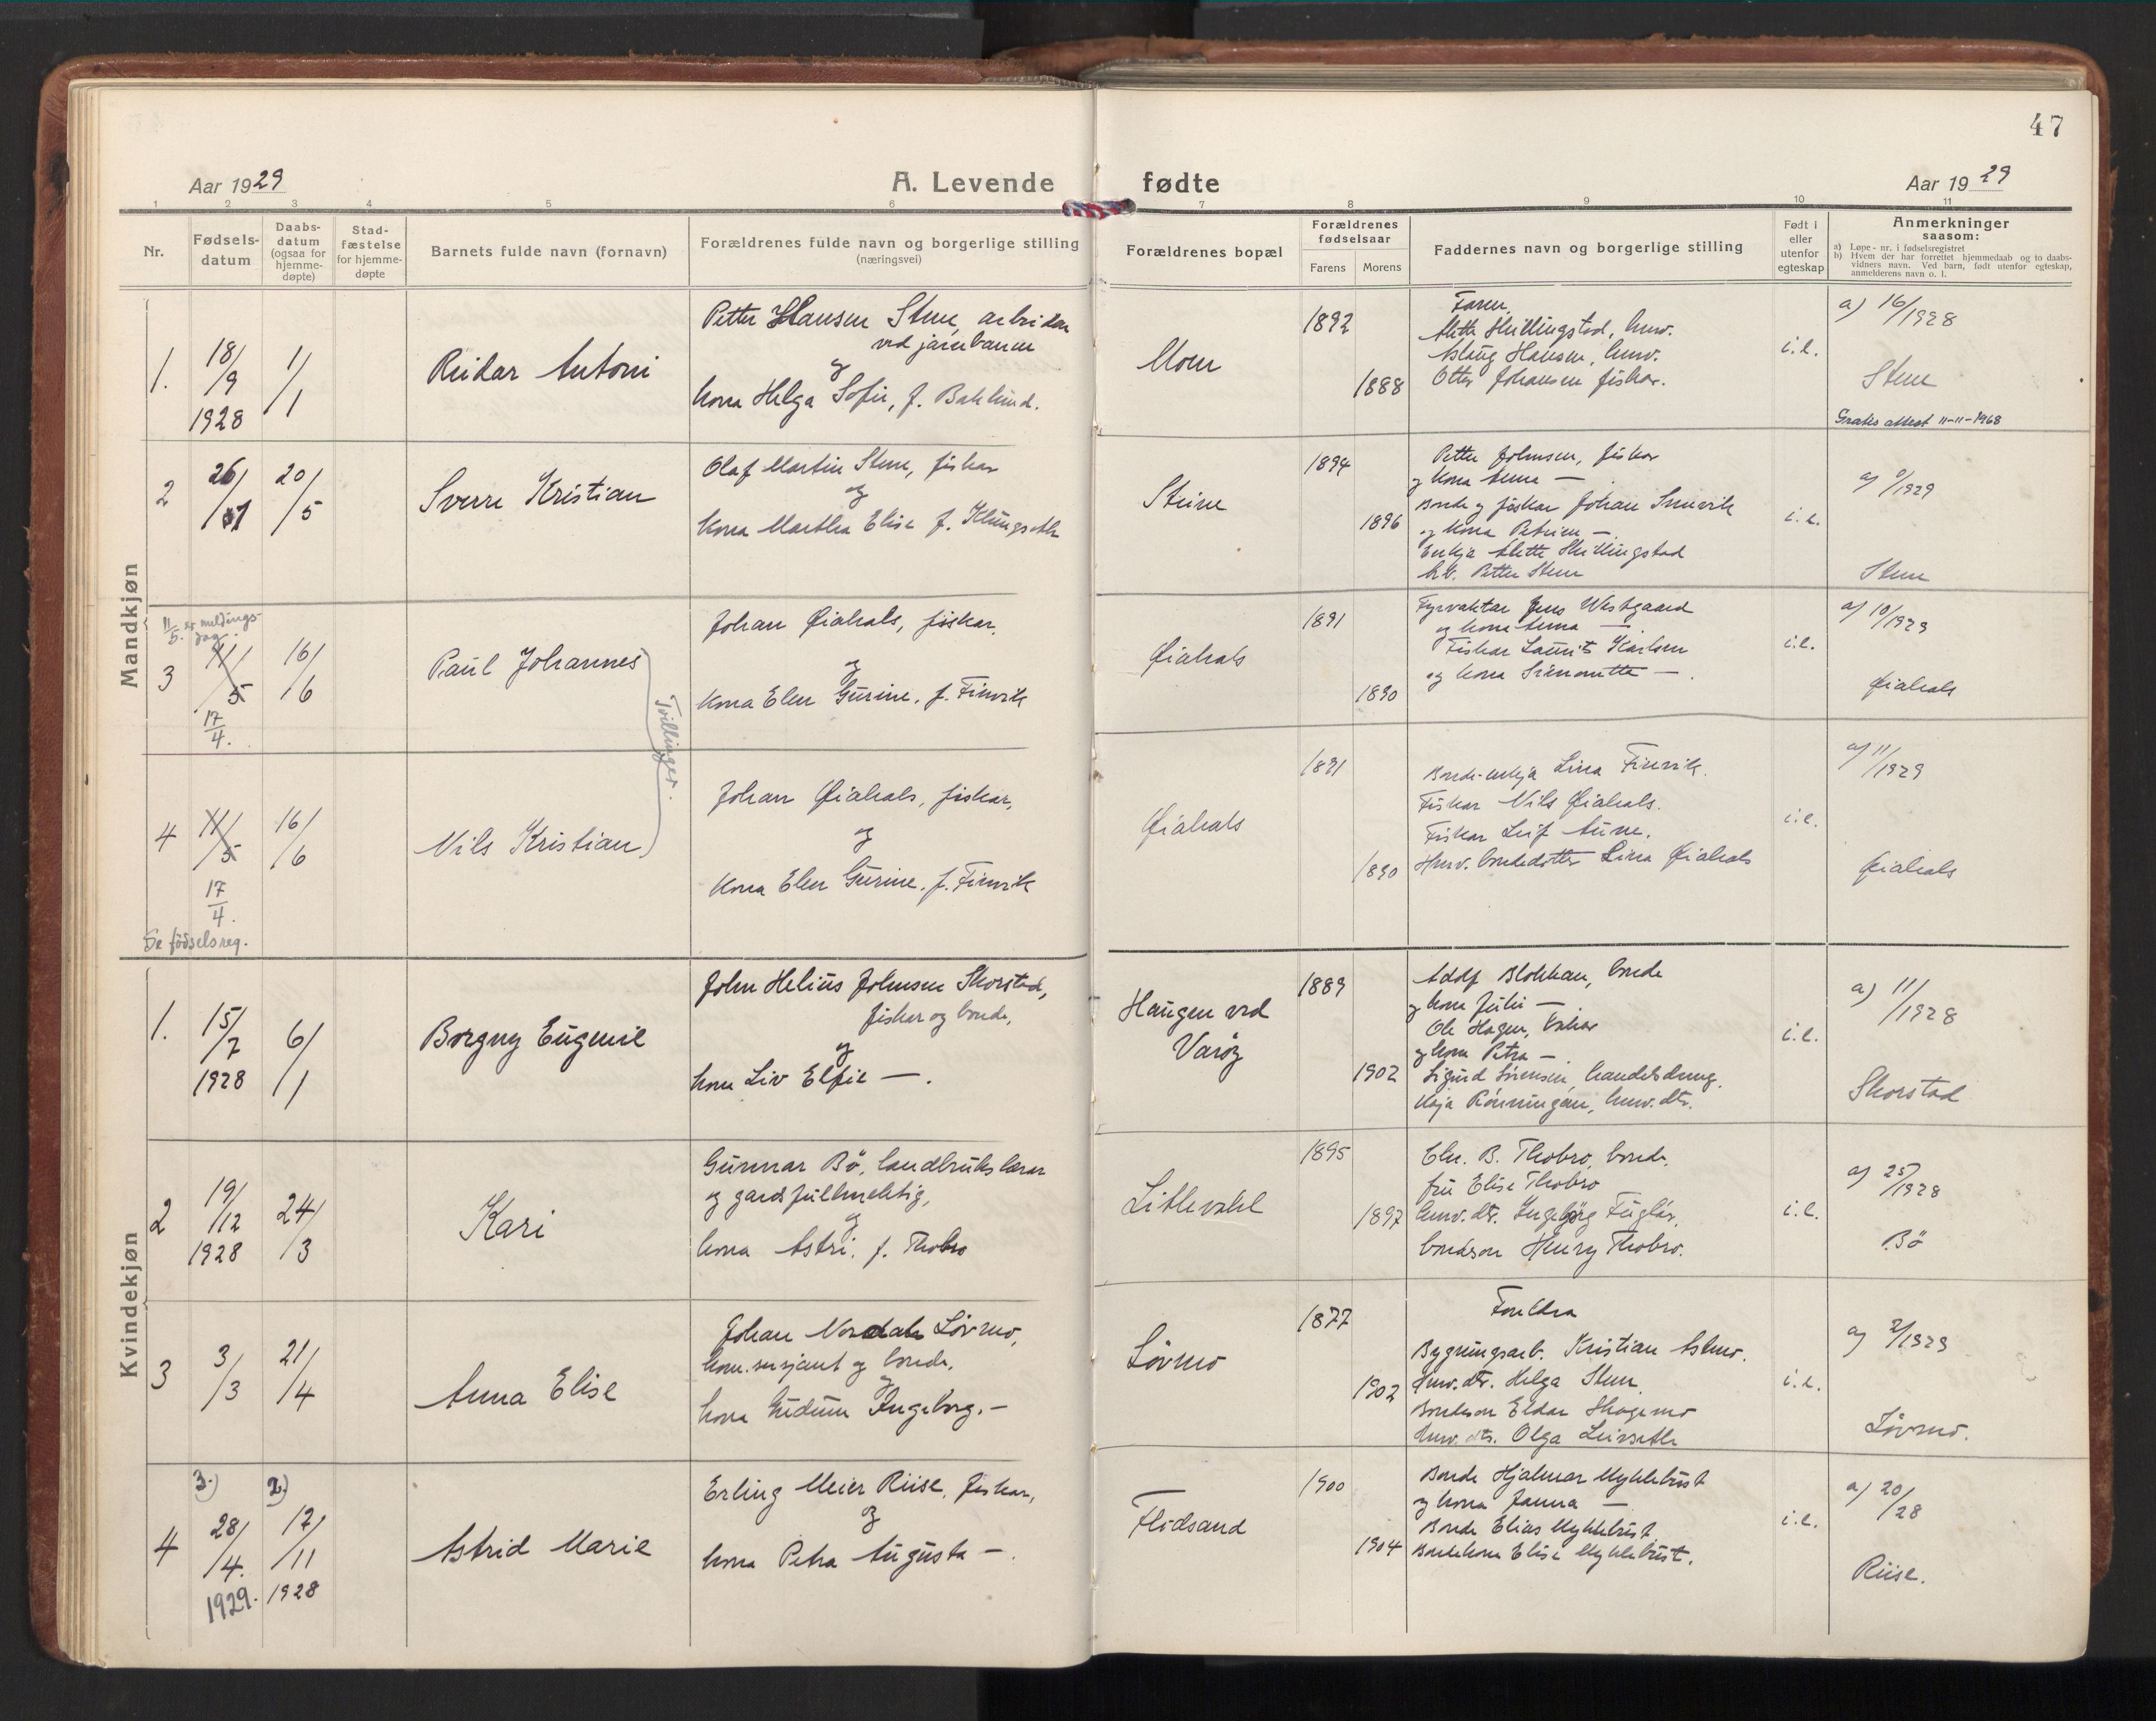 47
Aar 1929
A. Levende fødte
Aar 1929
1 2 3 4 5 6 7 8 9 10 11
Nr.
Fødsels-
datum
Daabs-
datum
(ogsaa for
hjemme-
døpte)
Stad-
fæstelse
for hjemme-
døpte
Barnets fulde navn (fornavn)
Forældrenes fulde navn og borgerlige stilling
(næringsvei)
Forældrenes bopæl
Forældrenes
fødselsaar
Farens
Morens
Faddernes navn og borgerlige stilling
Født i
eller
utenfor
egteskap
Anmerkninger
saasom:
a) Løpe-nr. i fødselsregistret
b) Hvem der har forrettet hjemmedaab og to daabs-
vidners navn. Ved barn, født utenfor egteskap,
anmelderens navn o. l.
Mandkjøn
1.
18/9
1928
1/1
Reidar Antoni
Petter Hansen Stene, arbeidar
ved jarnbanen
og
kona Helga Sofie, f. Baklund.
Moen
1892
1888
Faren.
Alette Skillingstad, husv.
Aslaug Hansen, husv.
Otter Johansen fiskar.
i.e.
a) 16/1928
Stene
Gratis attest 11-11-1968
2
26/1
20/5
Sverre Kristian
Olaf Martin Stene, fiskar
og
kona Marthea Elise f. Klungseth
Steine
1894
1896
Petter Johnsen, fiskar
og kona Anna —
Bonde og fiskar Johan
og kona
Enkja Alette Skillingstad
Petter Stene
i.e.
a) 9/1929
Stene
11/5. er meldings-
dag.
3
11/5
17/4.
16/6
Paul Johannes
Tvillinger.
Johan Øiahals, fiskar,
og
kona Elen Gurine, f. Finvik
Øiahals
1891
1890
Fyrvaktar Jens Westgaard
og kona Anna —
Fiskar Laurits Karlsen
og kona —.
i.e.
a) 10/1929
Øiahals
4
11/5
17/4.
Se fødselsreg.
16/6
Nils Kristian
Johan Øiahals, fiskar,
og
kona Elen Gurine, f. Finvik
Øiahals
1891
1890
Bonde-enkja Lina Finvik.
Fiskar Nils Øiahals.
Fiskar Leif Aune.
Husv. bondedotter Lina Øiahals
i.e.
a) 11/1929
Øiahals
Kvindekjøn
1.
15/7
1928
6/1
Borgny Eugenie
John Helius Johnsen Skorstad,
fiskar og bonde,
og
kona Liv Elfie —.
Haugen ved
Varøy
1889
1902
Adolf Blokkan, bonde
og kona Julie —.
Ole Hagen, fiskar
og kona Petra —.
Sigurd Sørensen, handelsdreng.
Kaja Rønningen, husv. dtr.
i.e.
a) 11/1928
Skorstad
2
19/12
1928
24/3
Kari
Gunnar Bö, landbrukslærar
og gardsfullmektig,
og
kona Astri, f. Thobro
Litlevahl
1895
1897
Chr. B. Thobro, bonde.
fru Elise Thobro
husv. dtr. Ingebjørg Fuglår.
bondeson Henry Thobro.
i.e.
a) 25/1928
Bö
3
3/3
21/4
Anna Elise
Johan Nordahl Lövmo,
kom. sersjant og bonde.
og
kona Gudrun Ingeborg. —
Lövmo
1877
1902
Foreldra
Bygningsarb. Kristian Aslmo.
husv. dtr. Helga Stene.
Bondeson Eldar Skagemo
husv. dtr. Olga Leirseth
i.e.
a) 2/1929
Lövmo.
4
3.)
28/4.
1929.
2.)
17/11
1928
Astrid Marie
Erling Meier Riise, fiskar,
og
kona Petra Augusta —.
Flodsand
1900
1904
Bonde Hjalmar Myklebust
og kona Janna —
Bonde Elias Myklebust
Bondekona Elise Myklebust.
i.e.
a) 20/28
Riise.